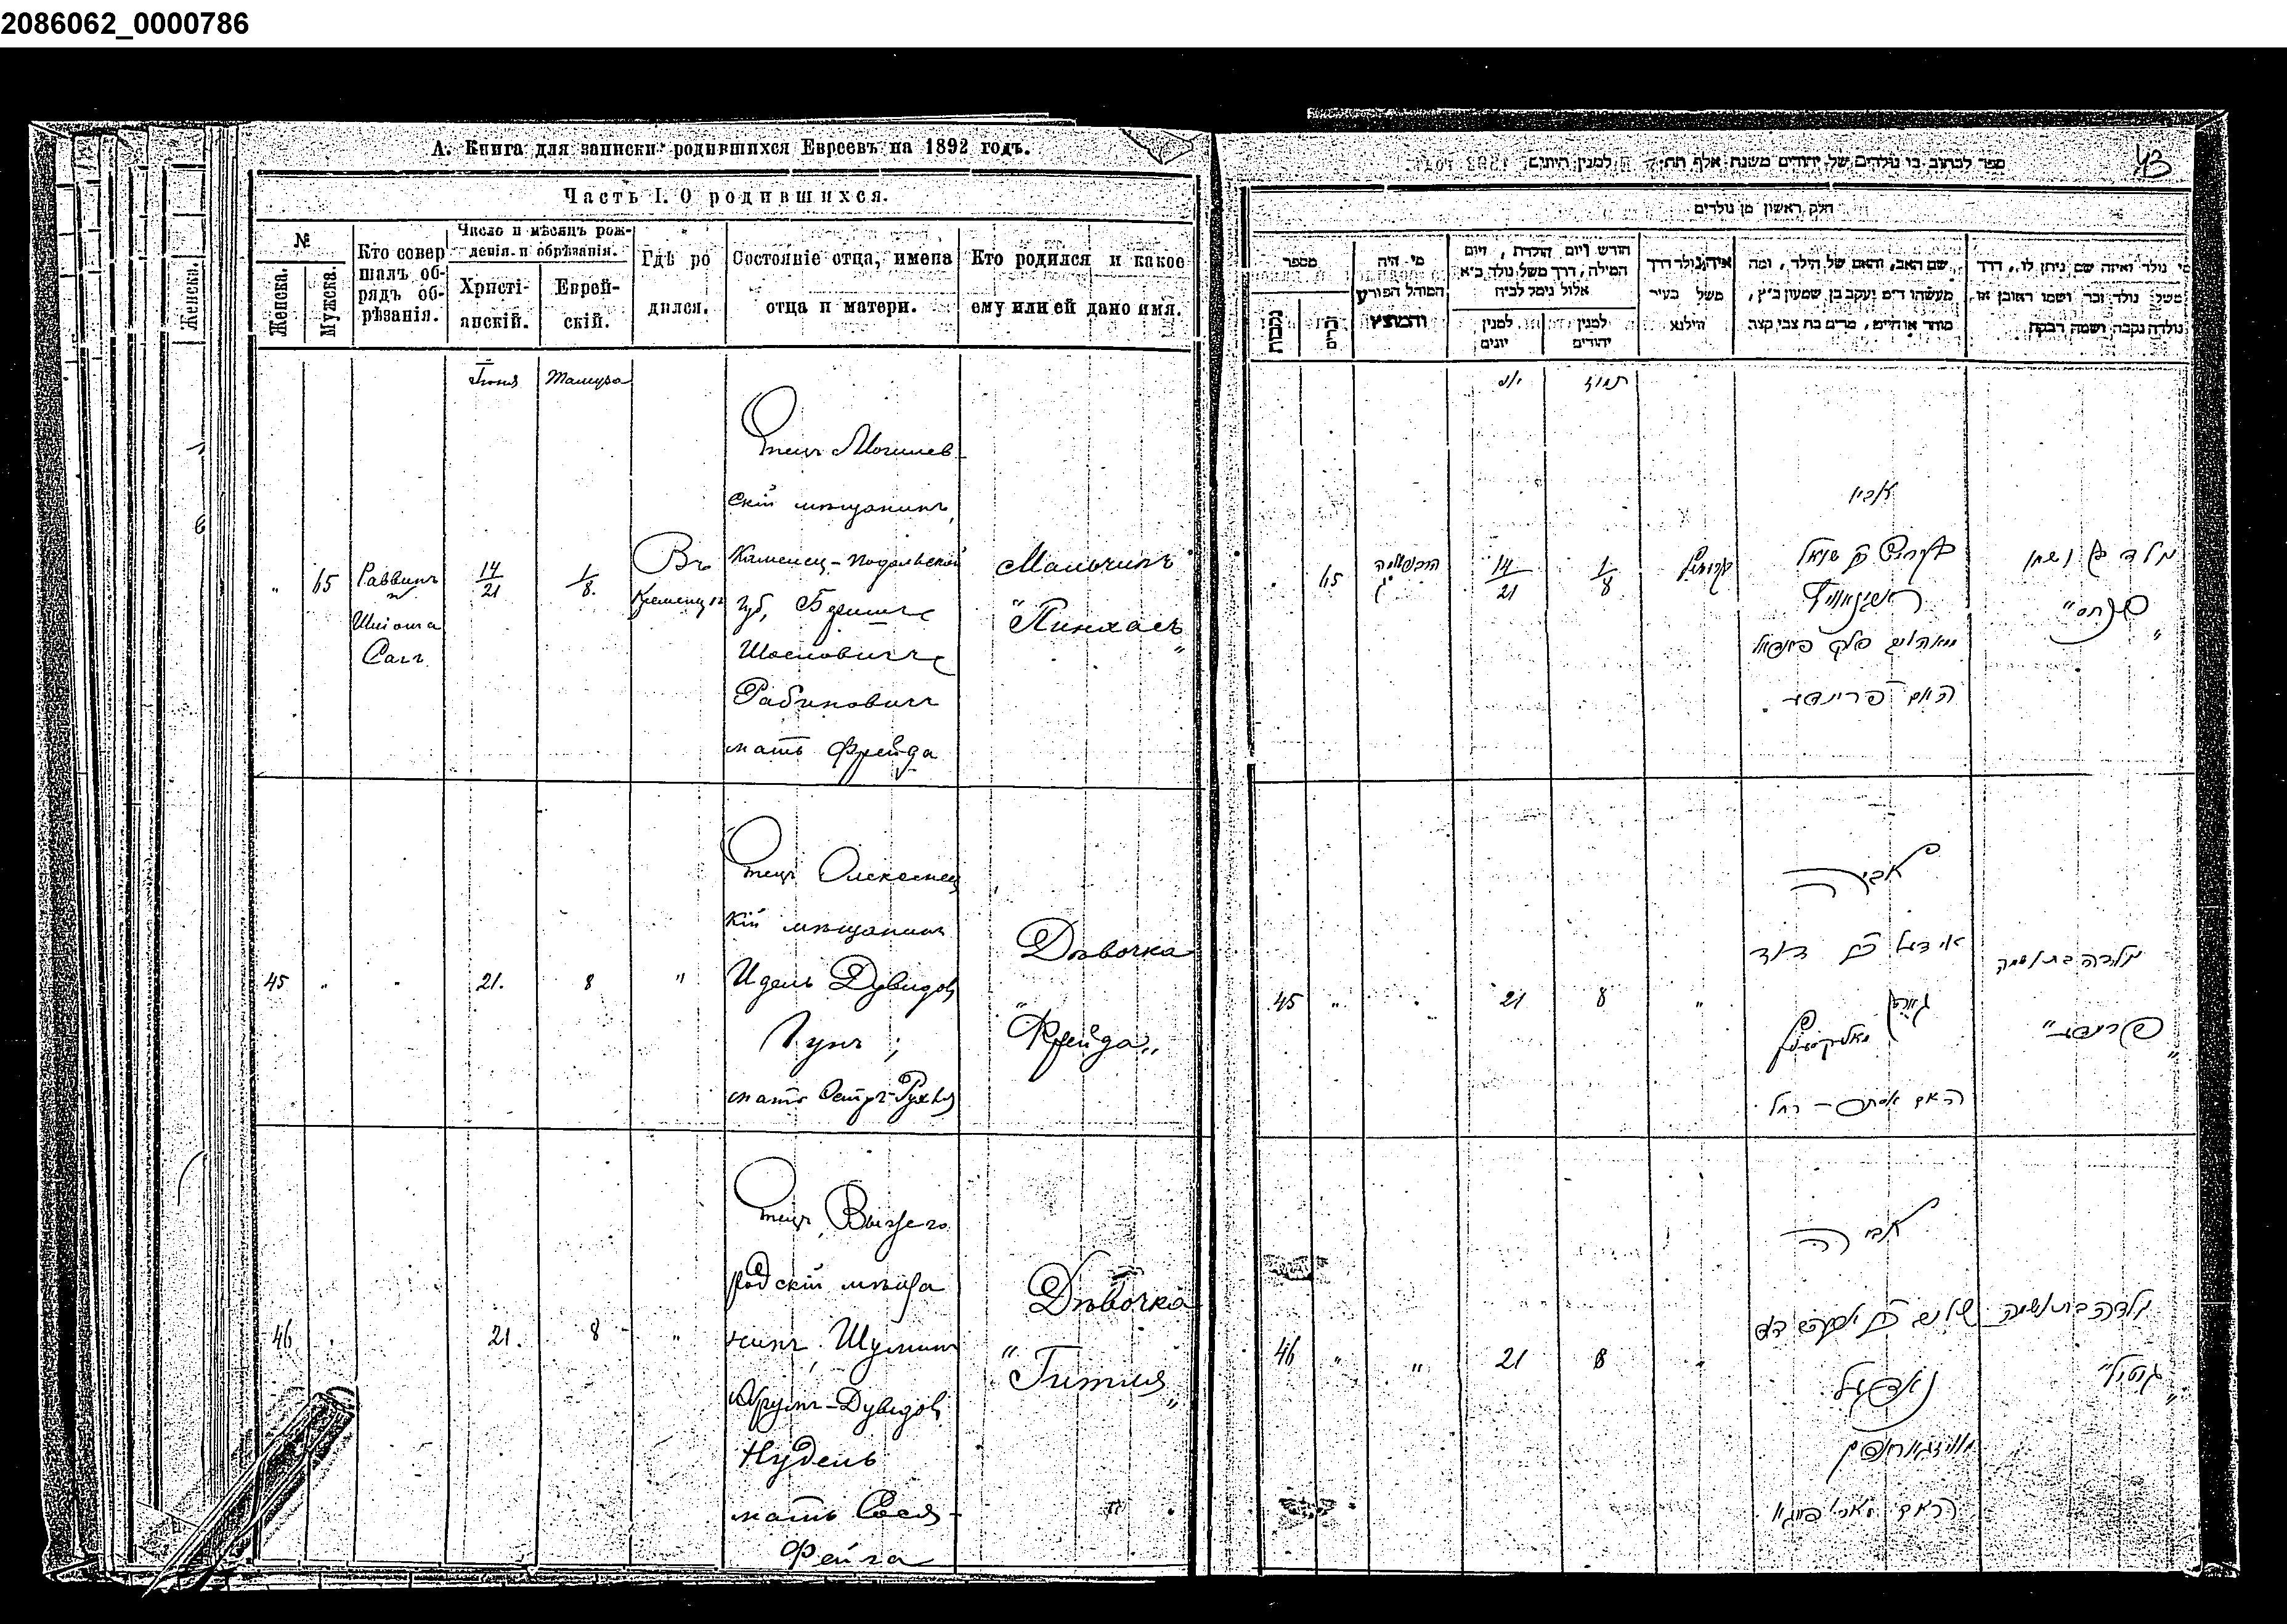 2086062_0000786
А. Книга для записки родившихся Евреевъ на 1892 годъ.
Часть I. О родившихся.
№
Женска.
Мужска.
Кто совер
шалъ об-
рядъ об-
рѣзанія.
Число и мѣсяцъ рож-
денія и обрѣзанія.
Христі-
анскій.
Еврей-
скій.
Гдѣ ро
дился.
Состояніе отца, имена
отца и матери.
Кто родился и какое
ему или ей дано имя.
Женска.
Іюня
Тамуза
65
Раввинъ
Шліома
Саг.
14
21
1
8.
Въ
Кременцѣ
Отецъ Могилев
скій мѣщанинъ,
Каменец-Подольской
губ, Беришъ
Шоеловичъ
Рабиновичъ
мать Фрейда
Мальчикъ
"Пинхасъ"
45
"
21.
8
"
Отецъ Олексинец
кій мѣщанинъ
Идель Дувидов
Гунъ;
мать Эстеръ-Рухля
Дѣвочка
"Фрейда"
46
21.
8
"
Отецъ Вышго
родскій мѣща
нинъ, Шулимъ
Абрумъ-Дувидов
Нудель
мать Сося-
Фейга
Дѣвочка
"Гитля"
43
ספר לכתוב בו נולדים של יהודים משנת אלף תת למנין היונים
חלק ראשון מן נולדים
מספר
נקבות
זכרים
מי היה
המוהל הפורע
והמוצץ
חודש ויום הולדת, ויום
המילה, דרך משל נולד ב׳א
אלול נימל לב׳ח
למנין
יונים
למנין
יהודים
איה נולד דרך
משל בעיר
ווילנא
שם האב, והאם של הילד, ומה
מעשהו ד׳מ יעקב בן שמעון כ״ץ,
סוחר או חייט, מרים בת צבי קצב
מי נולד ואיזה שם ניתן לו, דרך
משל נולד זכר ושמו ראובן או
נולדה נקבה ושמה רבקה
תמוז
65
14
21
1
8
אביו
נולד בן ושמו
"פנחס"
האם פריידע
45
"
21
8
"
אביה
אידל בן דוד
האם אסתר - רחל
נולדה בת ושמה
"פריידע"
46
"
"
21
8
אביה
נולדה בת ושמה
"גיטל"